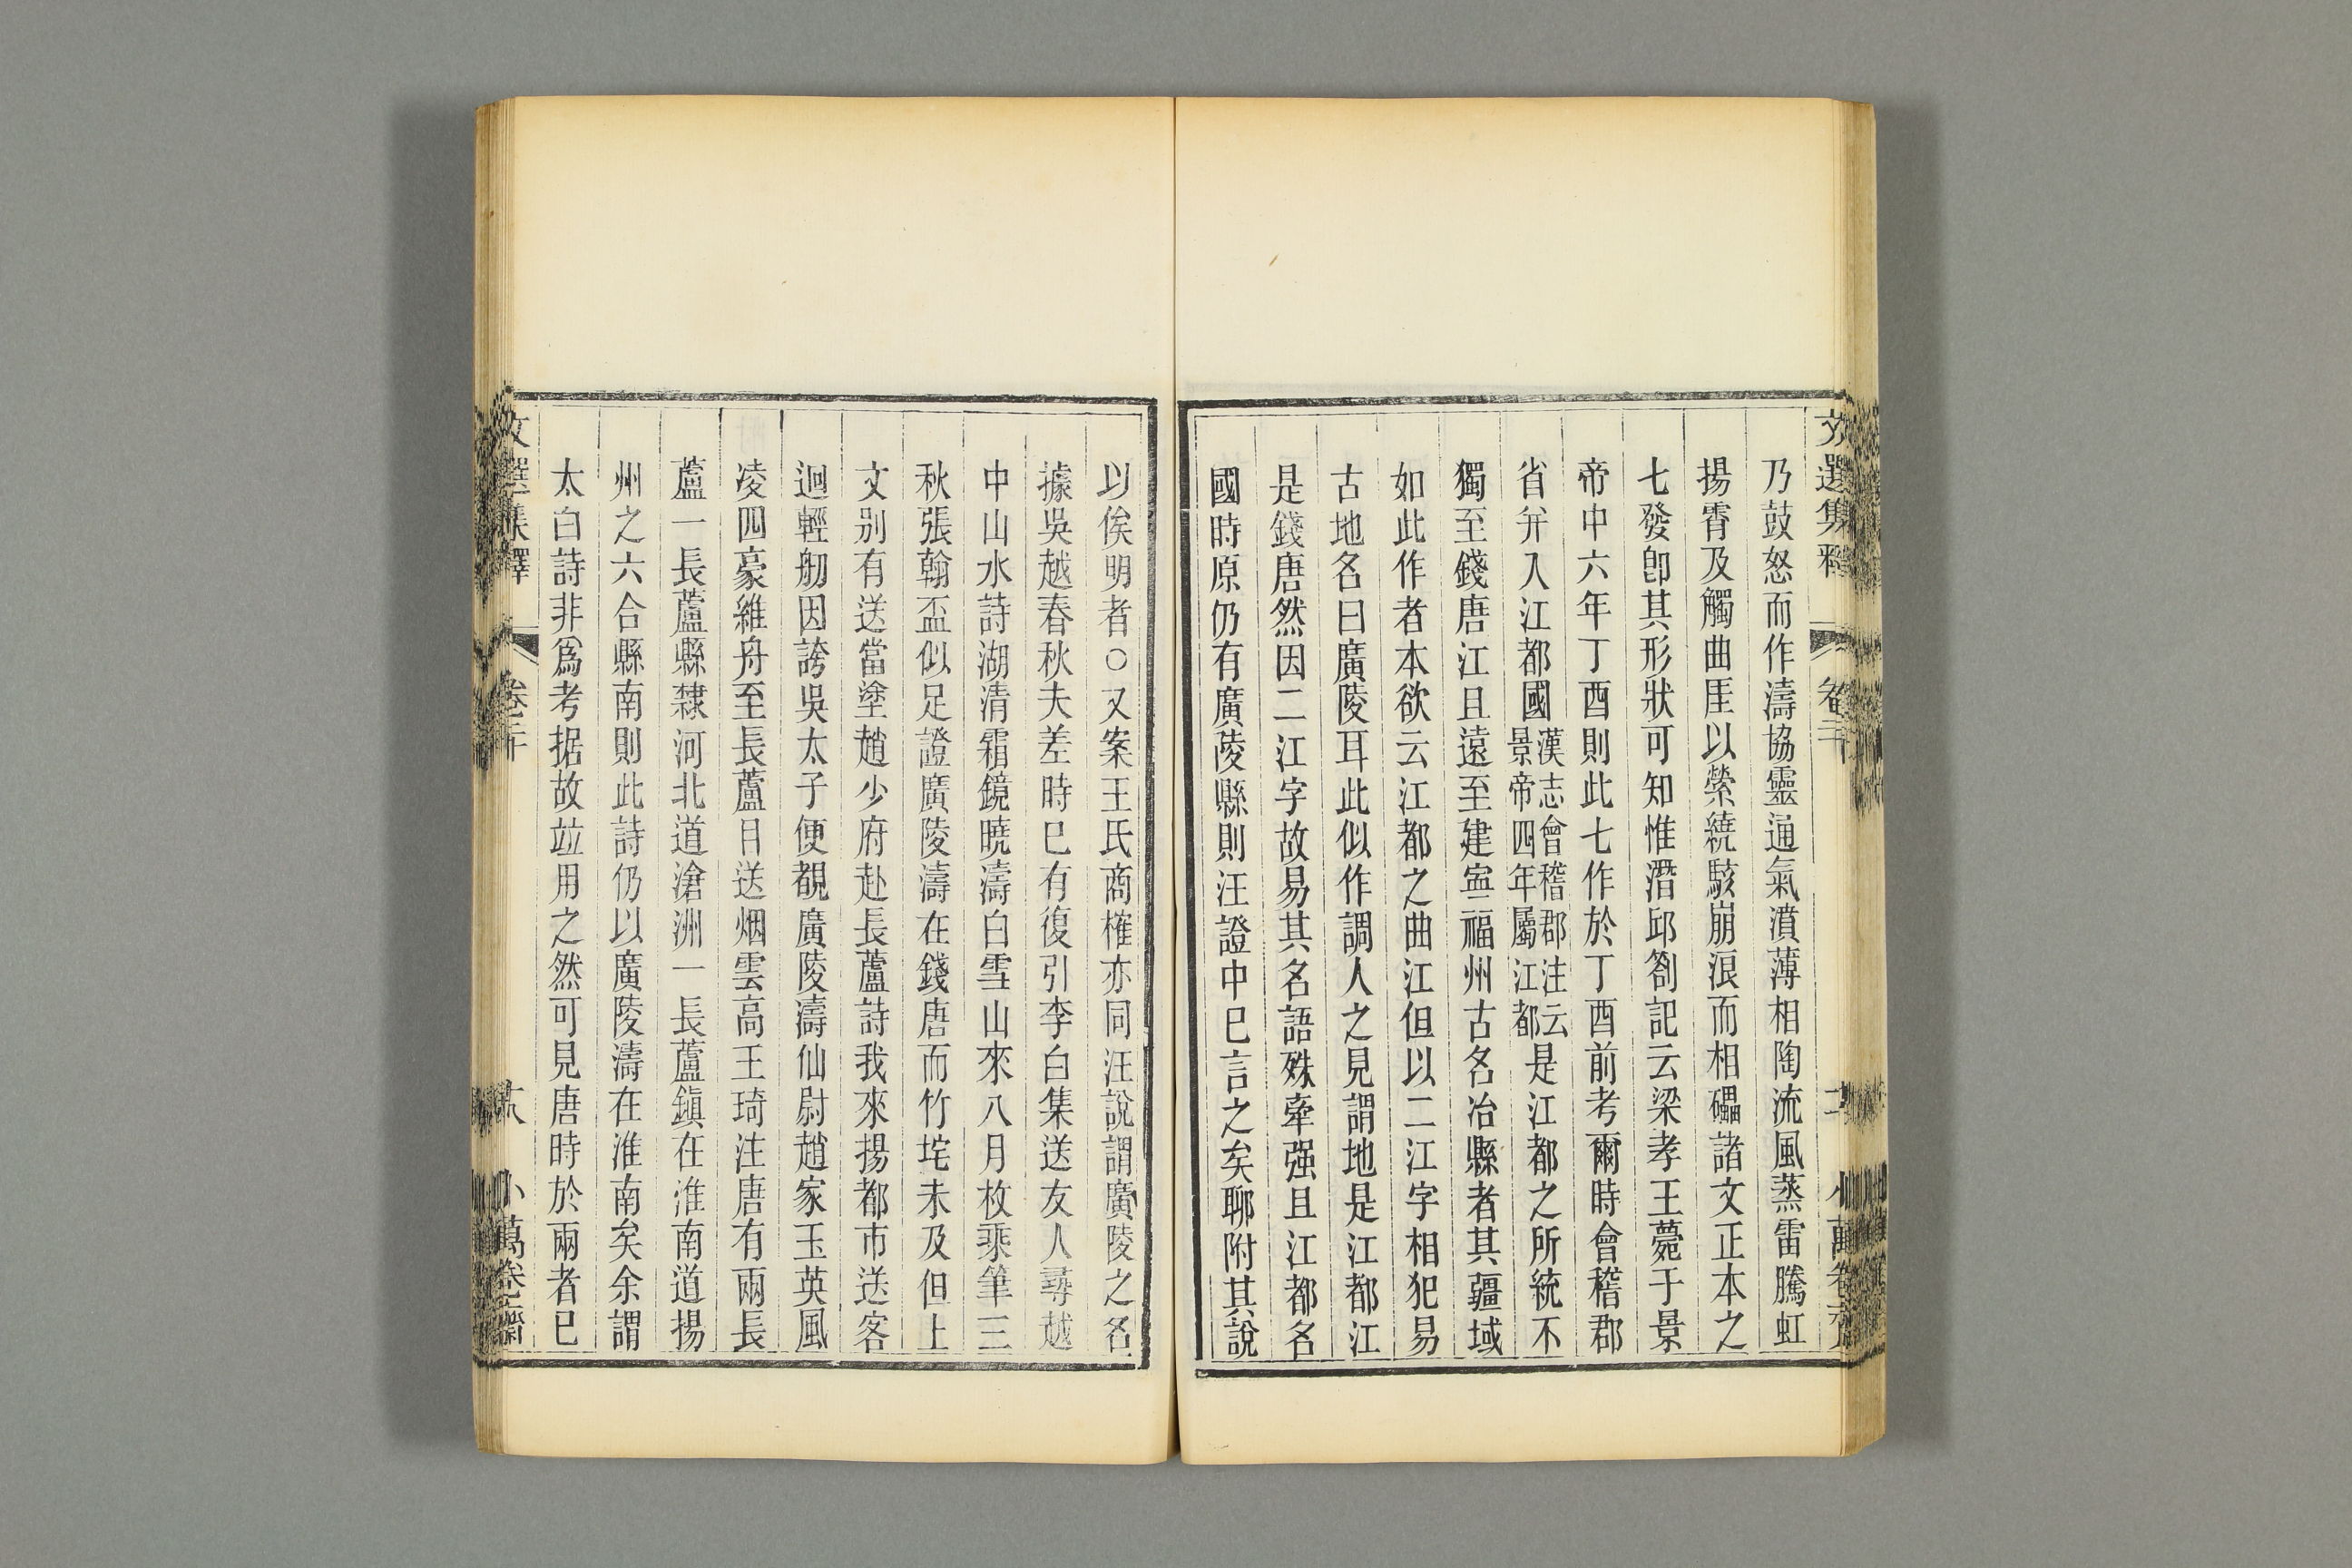 乃鼓怒而作濤協靈通氣濆薄相陶流風蒸雷騰虹
揚霄及觸曲厓以縈繞駭崩浪而相礧諸文正本之
七發卽其形狀可知惟潛邱劄記云梁孝王薨于景
帝中六年丁酉則此七作於丁酉前考爾時會稽郡
省幷入江都國漢志會稽郡注云景帝四年屬江都是江都之所統不
獨至錢唐江且遠至建寍福州古名冶縣者其疆域
如此作者本欲云江都之曲江但以二江字相犯易
古地名曰廣陵耳此似作調人之見謂地是江都江
是錢唐然因二江字故易其名語殊牽强且江都名
國時原仍有廣陵縣則汪證中巳言之矣聊附其說
以俟明者○又案王氏商榷亦同汪說謂廣陵之名
據吳越春秋夫差時巳有復引李白集送友人尋越
中山水詩湖清霜鏡曉濤白雪山來八月枚乘筆三
秋張翰盃似足證廣陵濤在錢唐而竹垞未及但上
文别有送當塗趙少府赴長蘆詩我來揚都市送客
迴輕舠因誇吳太子便覩廣陵濤仙尉趙家玉英風
凌四豪維舟至長蘆目送烟雲高王琦注唐有兩長
蘆一長蘆縣隸河北道滄洲一長蘆鎭在淮南道揚
州之六合縣南則此詩仍以廣陵濤在淮南矣余謂
太白詩非爲考据故竝用之然可見唐時於兩者巳
文選集釋 卷二十 小萬卷齋